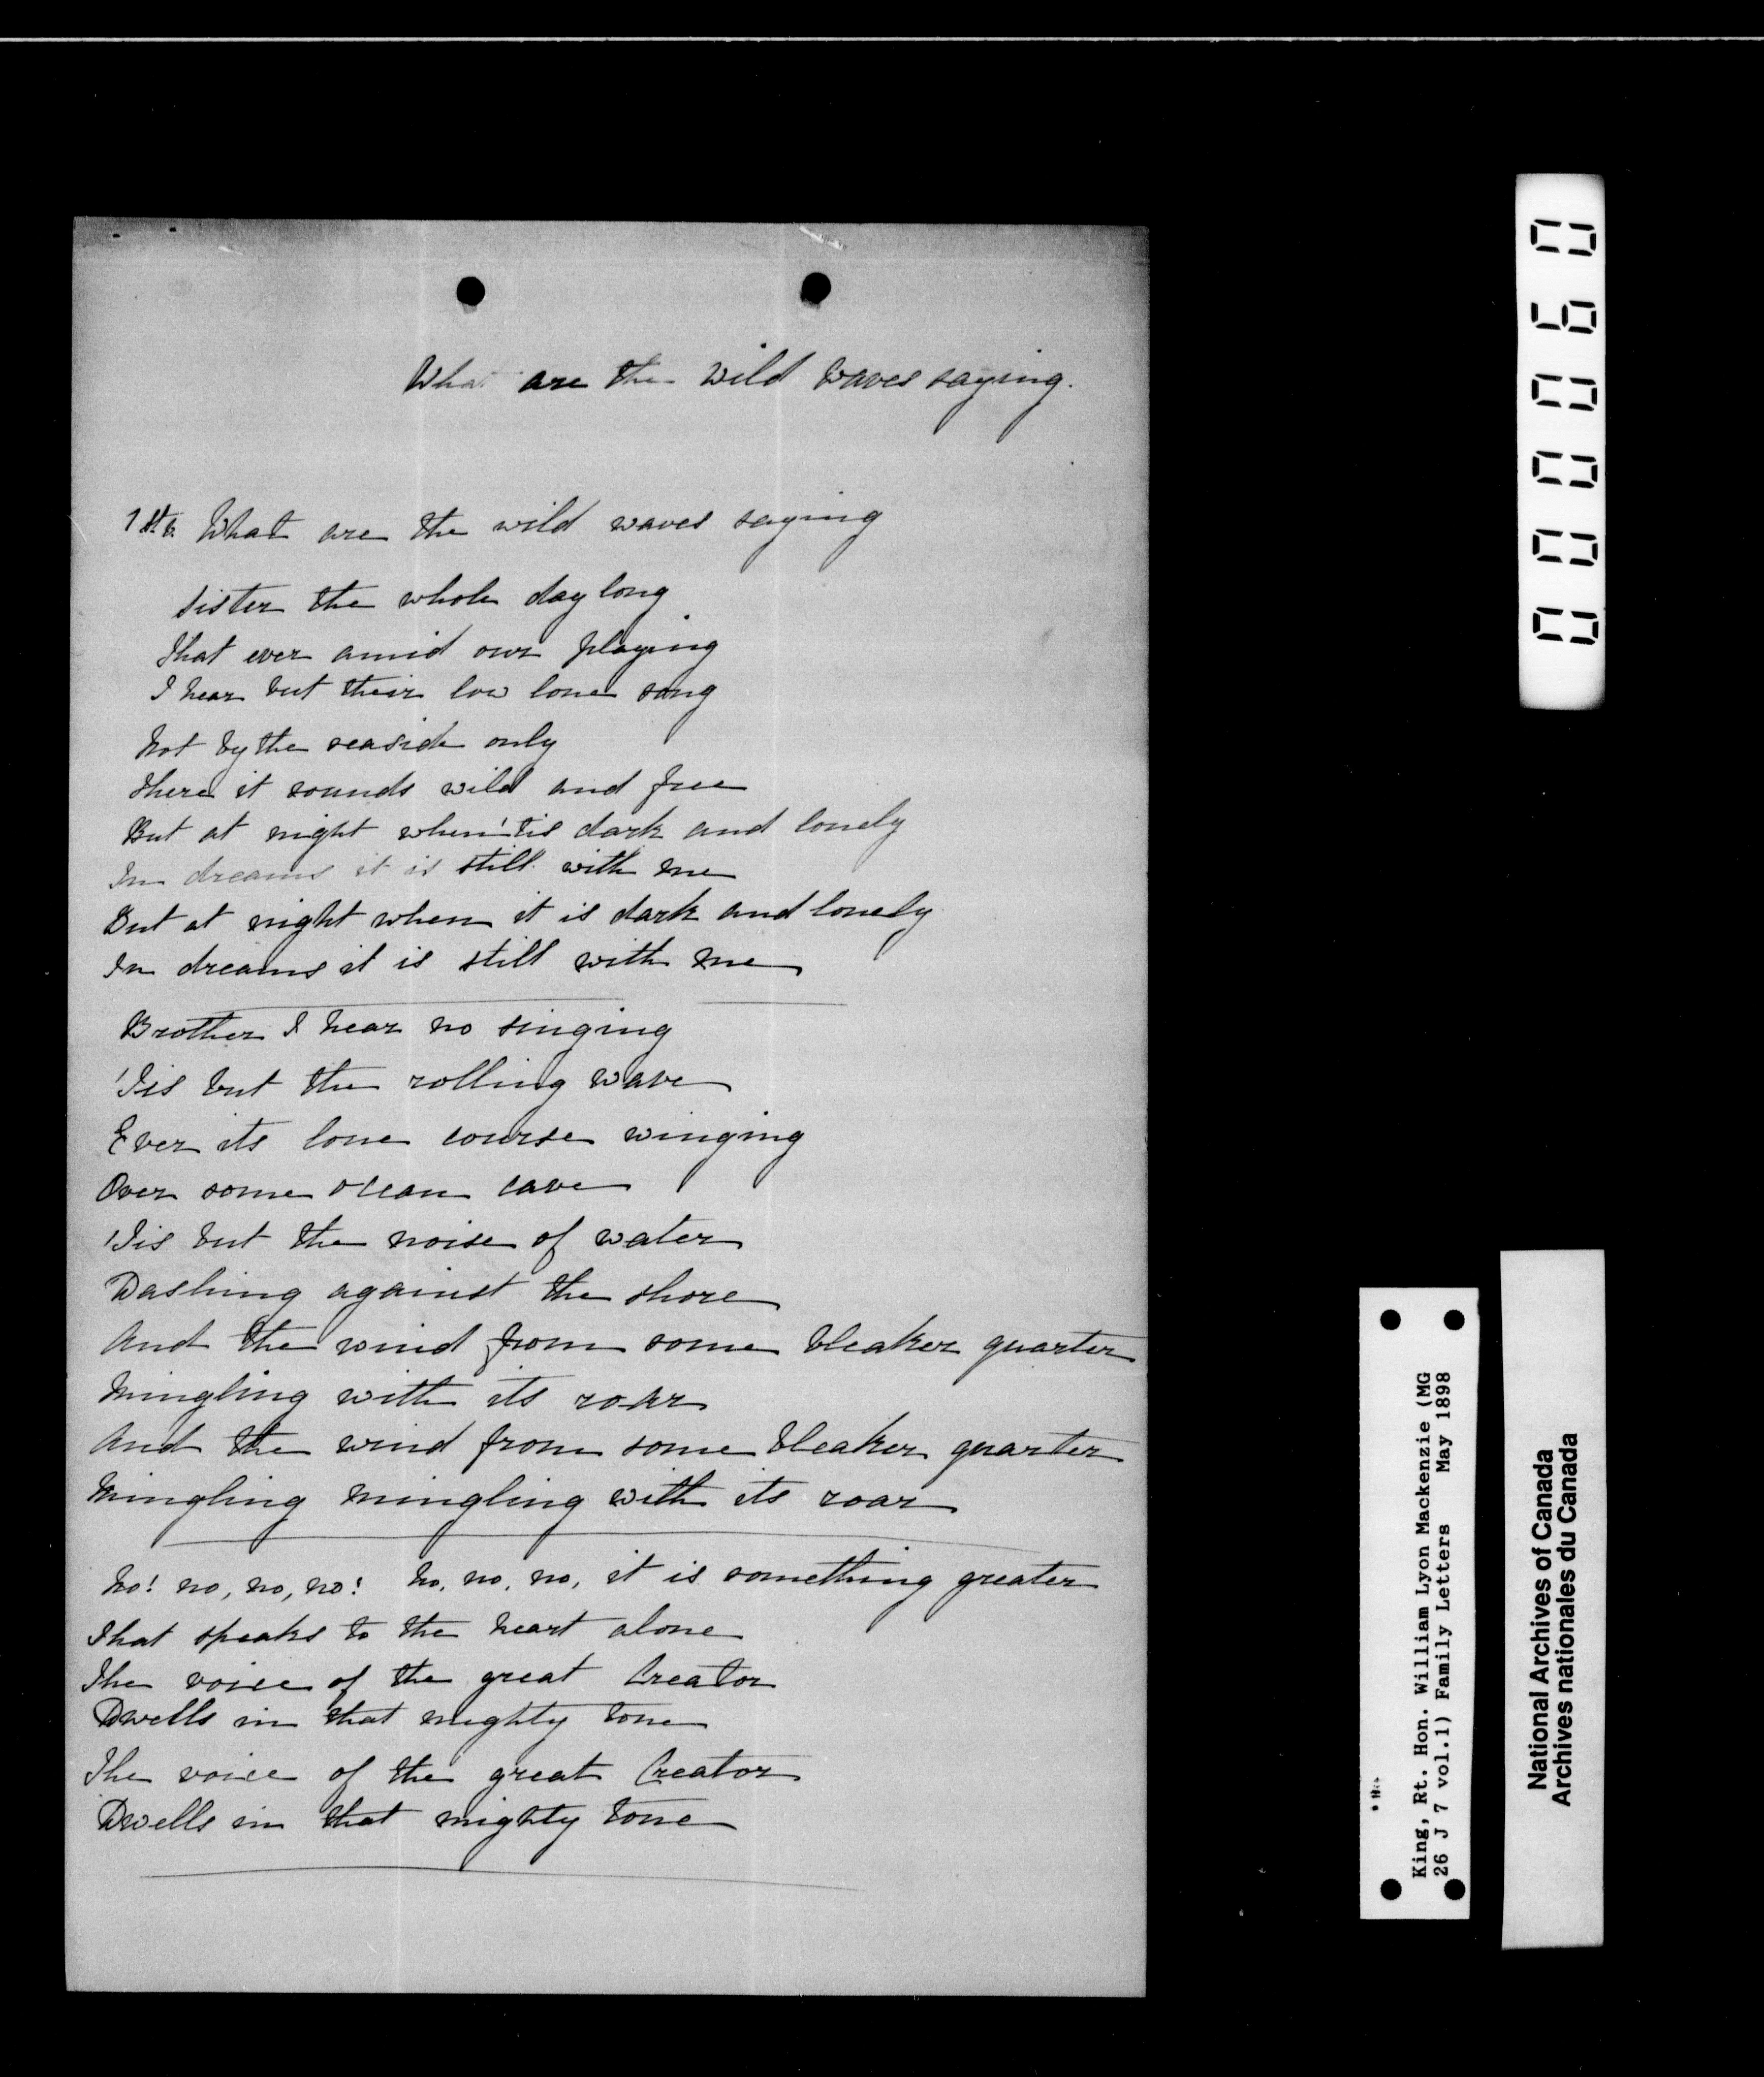 What are the wild waves saying.
1st. What are the wild waves saying
Sister the whole day long
That ever amid our playing
I hear but their low lone song
Not by the seaside only
There it sounds wild and free
But at night when 'tis dark and lonely
In dreams it is still with me
But at night when it is dark and lonely
In dreams it is still with me
Brother I hear no singing
'Tis but the rolling wave
Ever its lone course winging
Over some ocean cave
'Tis but the noise of water
Dashing against the shore
And the wind from some bleaker quarter
Mingling with its roar
And the wind from some bleaker quarter
Mingling mingling with its roar
No! no, no, no! No, no, no, it is something greater
That speaks to the heart alone
The voice of the great Creator
Dwells in that mighty tone
The voice of the great Creator
Dwells in that mighty tone
000060
King, Rt. Hon. William Lyon Mackenzie (MG
26 J 7 vol.1) Family Letters May 1898
National Archives of Canada
Archives nationales du Canada